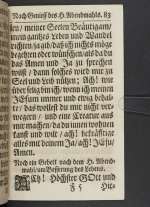 Nach Genuß des H. Abendmahls. 83
sten/ meiner Seelen Bräutigam/
mein gantzes Leben und Wandel
richten/ ja auch/ daß ich nichts möge
begehren oder wünschen/ als da du
das Amen und Ja zu sprechen
weist/ dann solches wird mir zu
Seel und Leib nützen; Ach! wie
über selig bin ich/ wenn ich meinen
JEsum immer und ewig behal-
te/ das wollest du mir nicht ver-
wegern/ und eine Creatur aus
mir machen/ da du innen wohnen
kanst und wilt/ ach! bekräfftige
alles mit deinem Ja/ ach! JEsu/
Amen.
Noch ein Gebet nach dem H. Abend-
mahl/ um Besserung des Lebens.
ACh! Höchster GOtt und
F 5